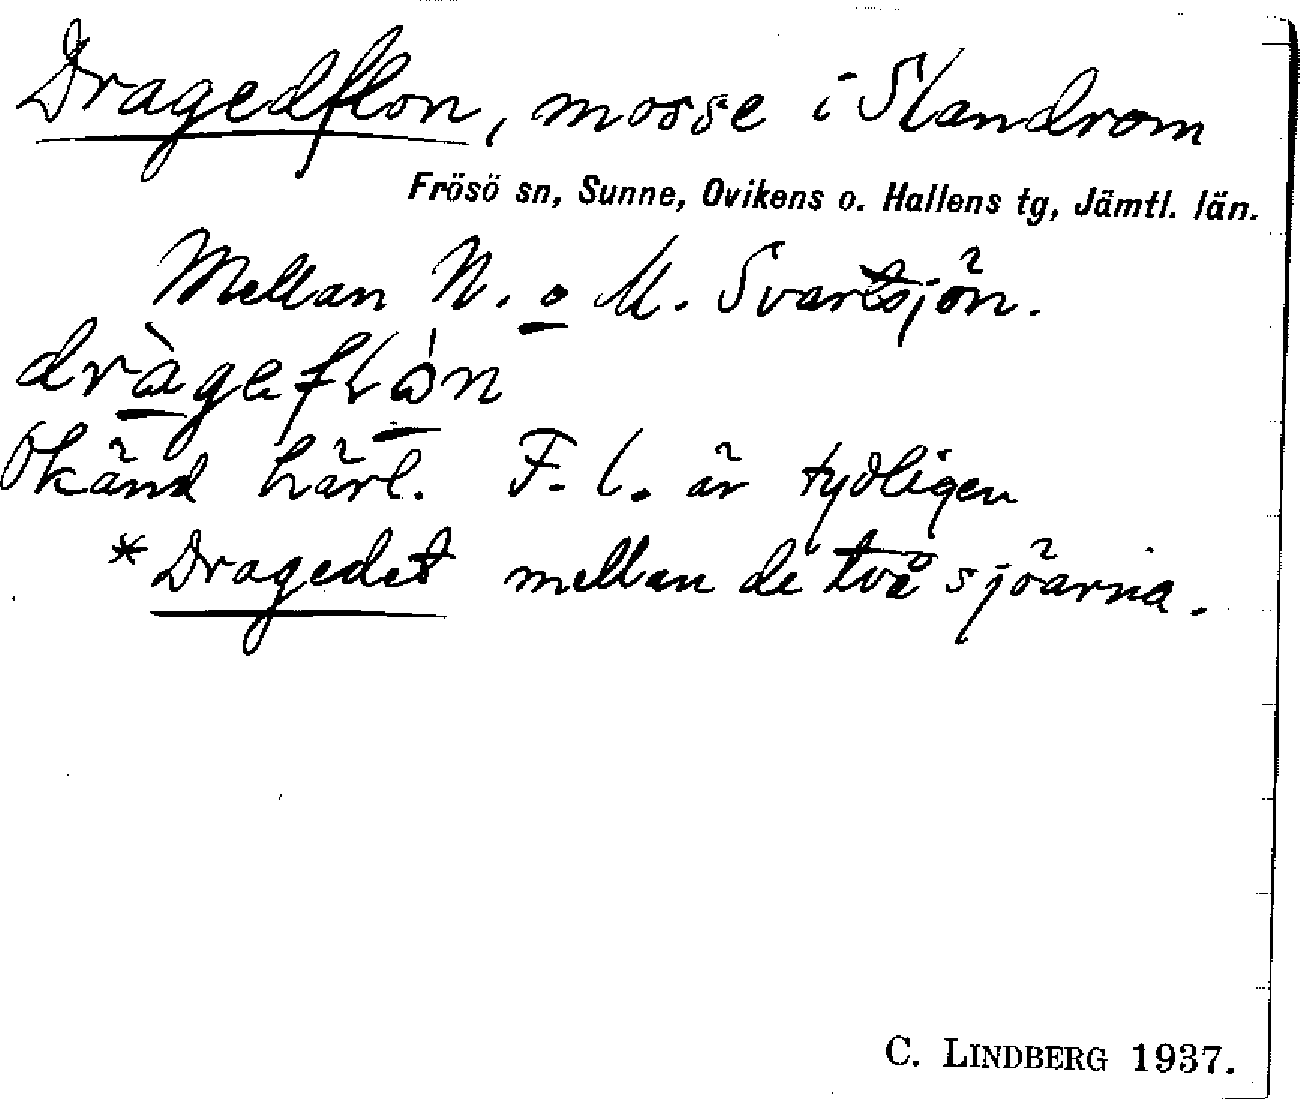 Dragedflon, mosse i Slandrom
Frösö sn, Sunne, Ovikens o. Hallens tg, Jämtl. län.
Mellan N. o M. Svartsjön.
dràgeflón
Okänd härl. F. l. är tydligen
*Dragedet mellan de två sjöarna.
C. LINDBERG 1937.